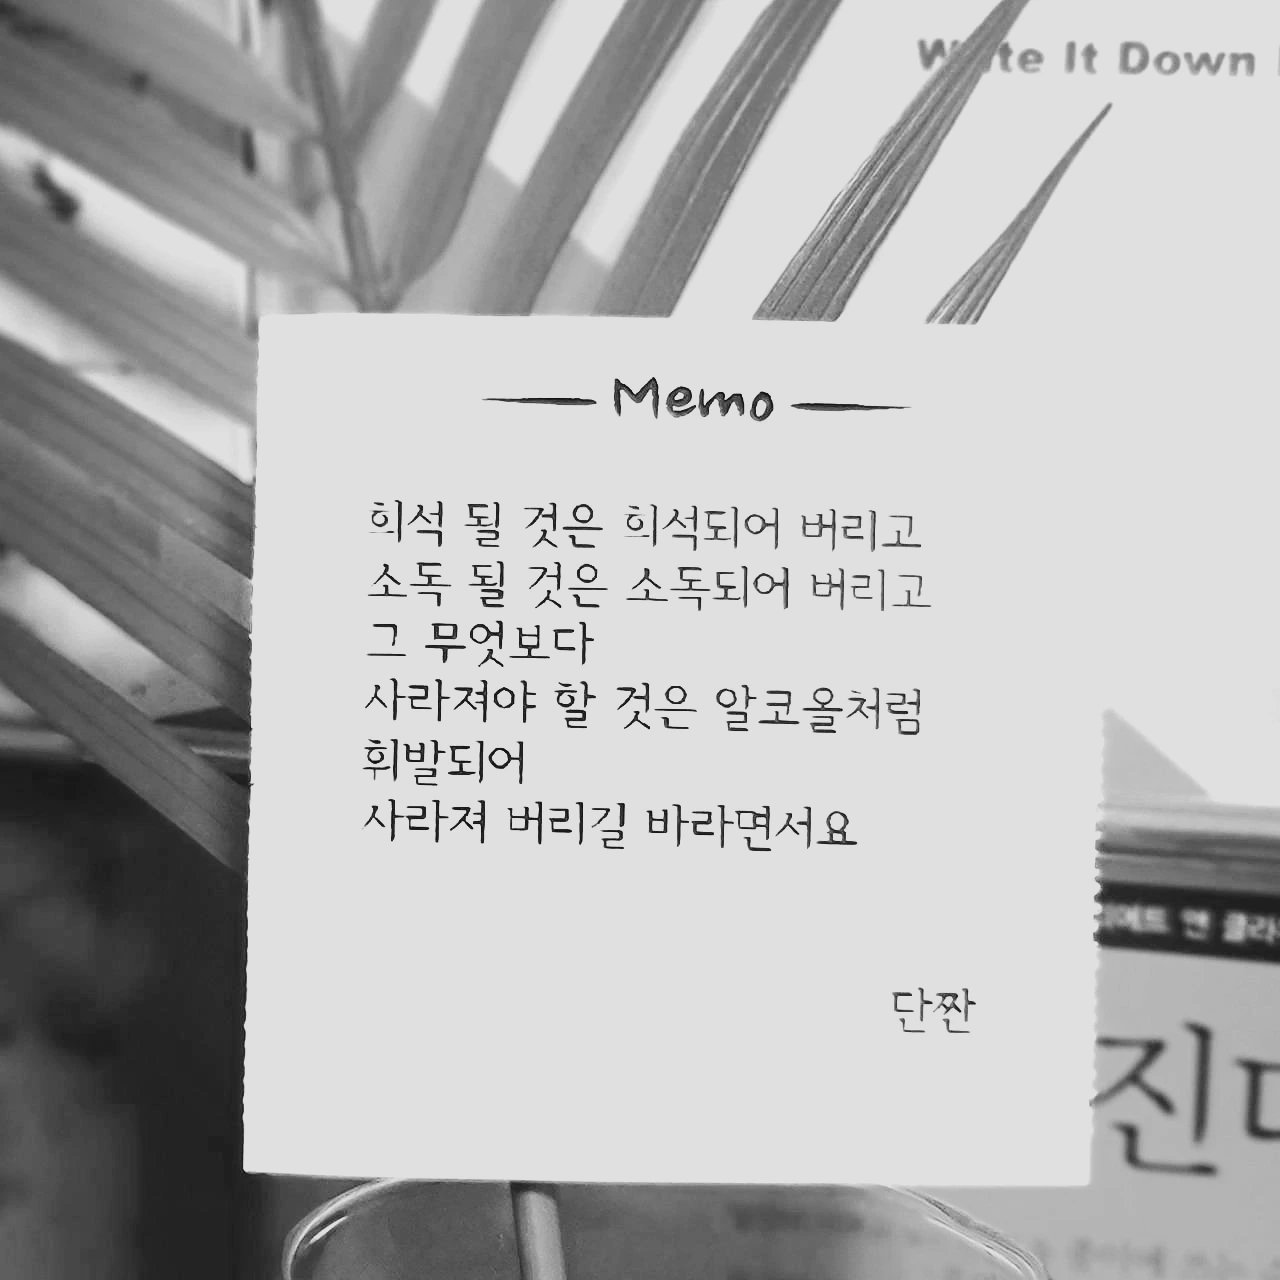 Write It Down
Memo
희석 될 것은 희석되어 버리고
소독 될 것은 소독되어 버리고
그 무엇보다
사라져야 할 것은 알코올처럼
휘발되어
사라져 버리길 바라면서요
단짠
앤
진